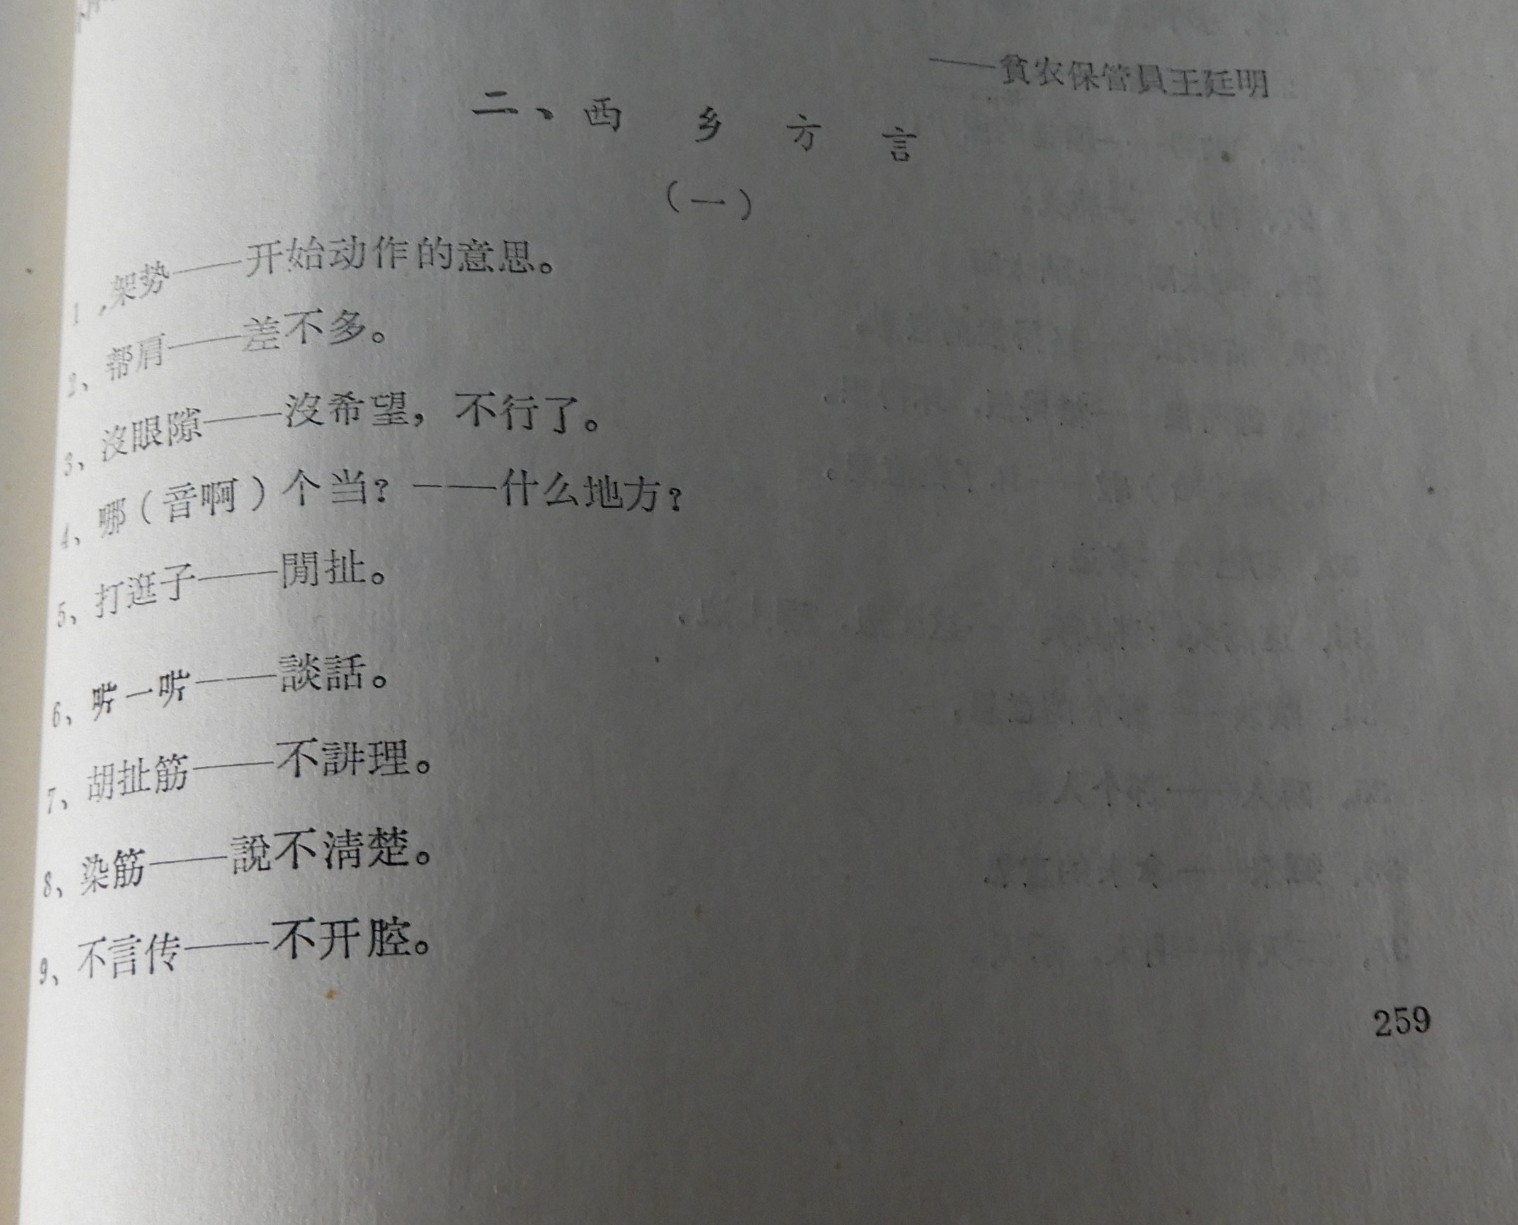 ——貧农保管員王廷明
二、西乡方言
（一）
1，架势——开始动作的意思。
2、帮肩——差不多。
3、沒眼隙——沒希望，不行了。
4、哪（音啊）个当？——什么地方？
5、打逛子——閒扯。
6、啃一啃——談話。
7、胡扯筋——不講理。
8、染筋——說不清楚。
9、不言传——不开腔。
259